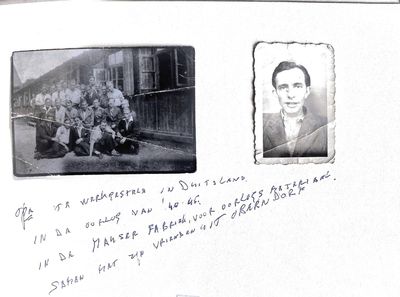 Opa ita werkgesteld in Duitsland.
in da oorlog van '40-45.
in da Mauser Fabriek, voor oorlogs materiaal
samen mat zijn vrienden uit Obarndorf